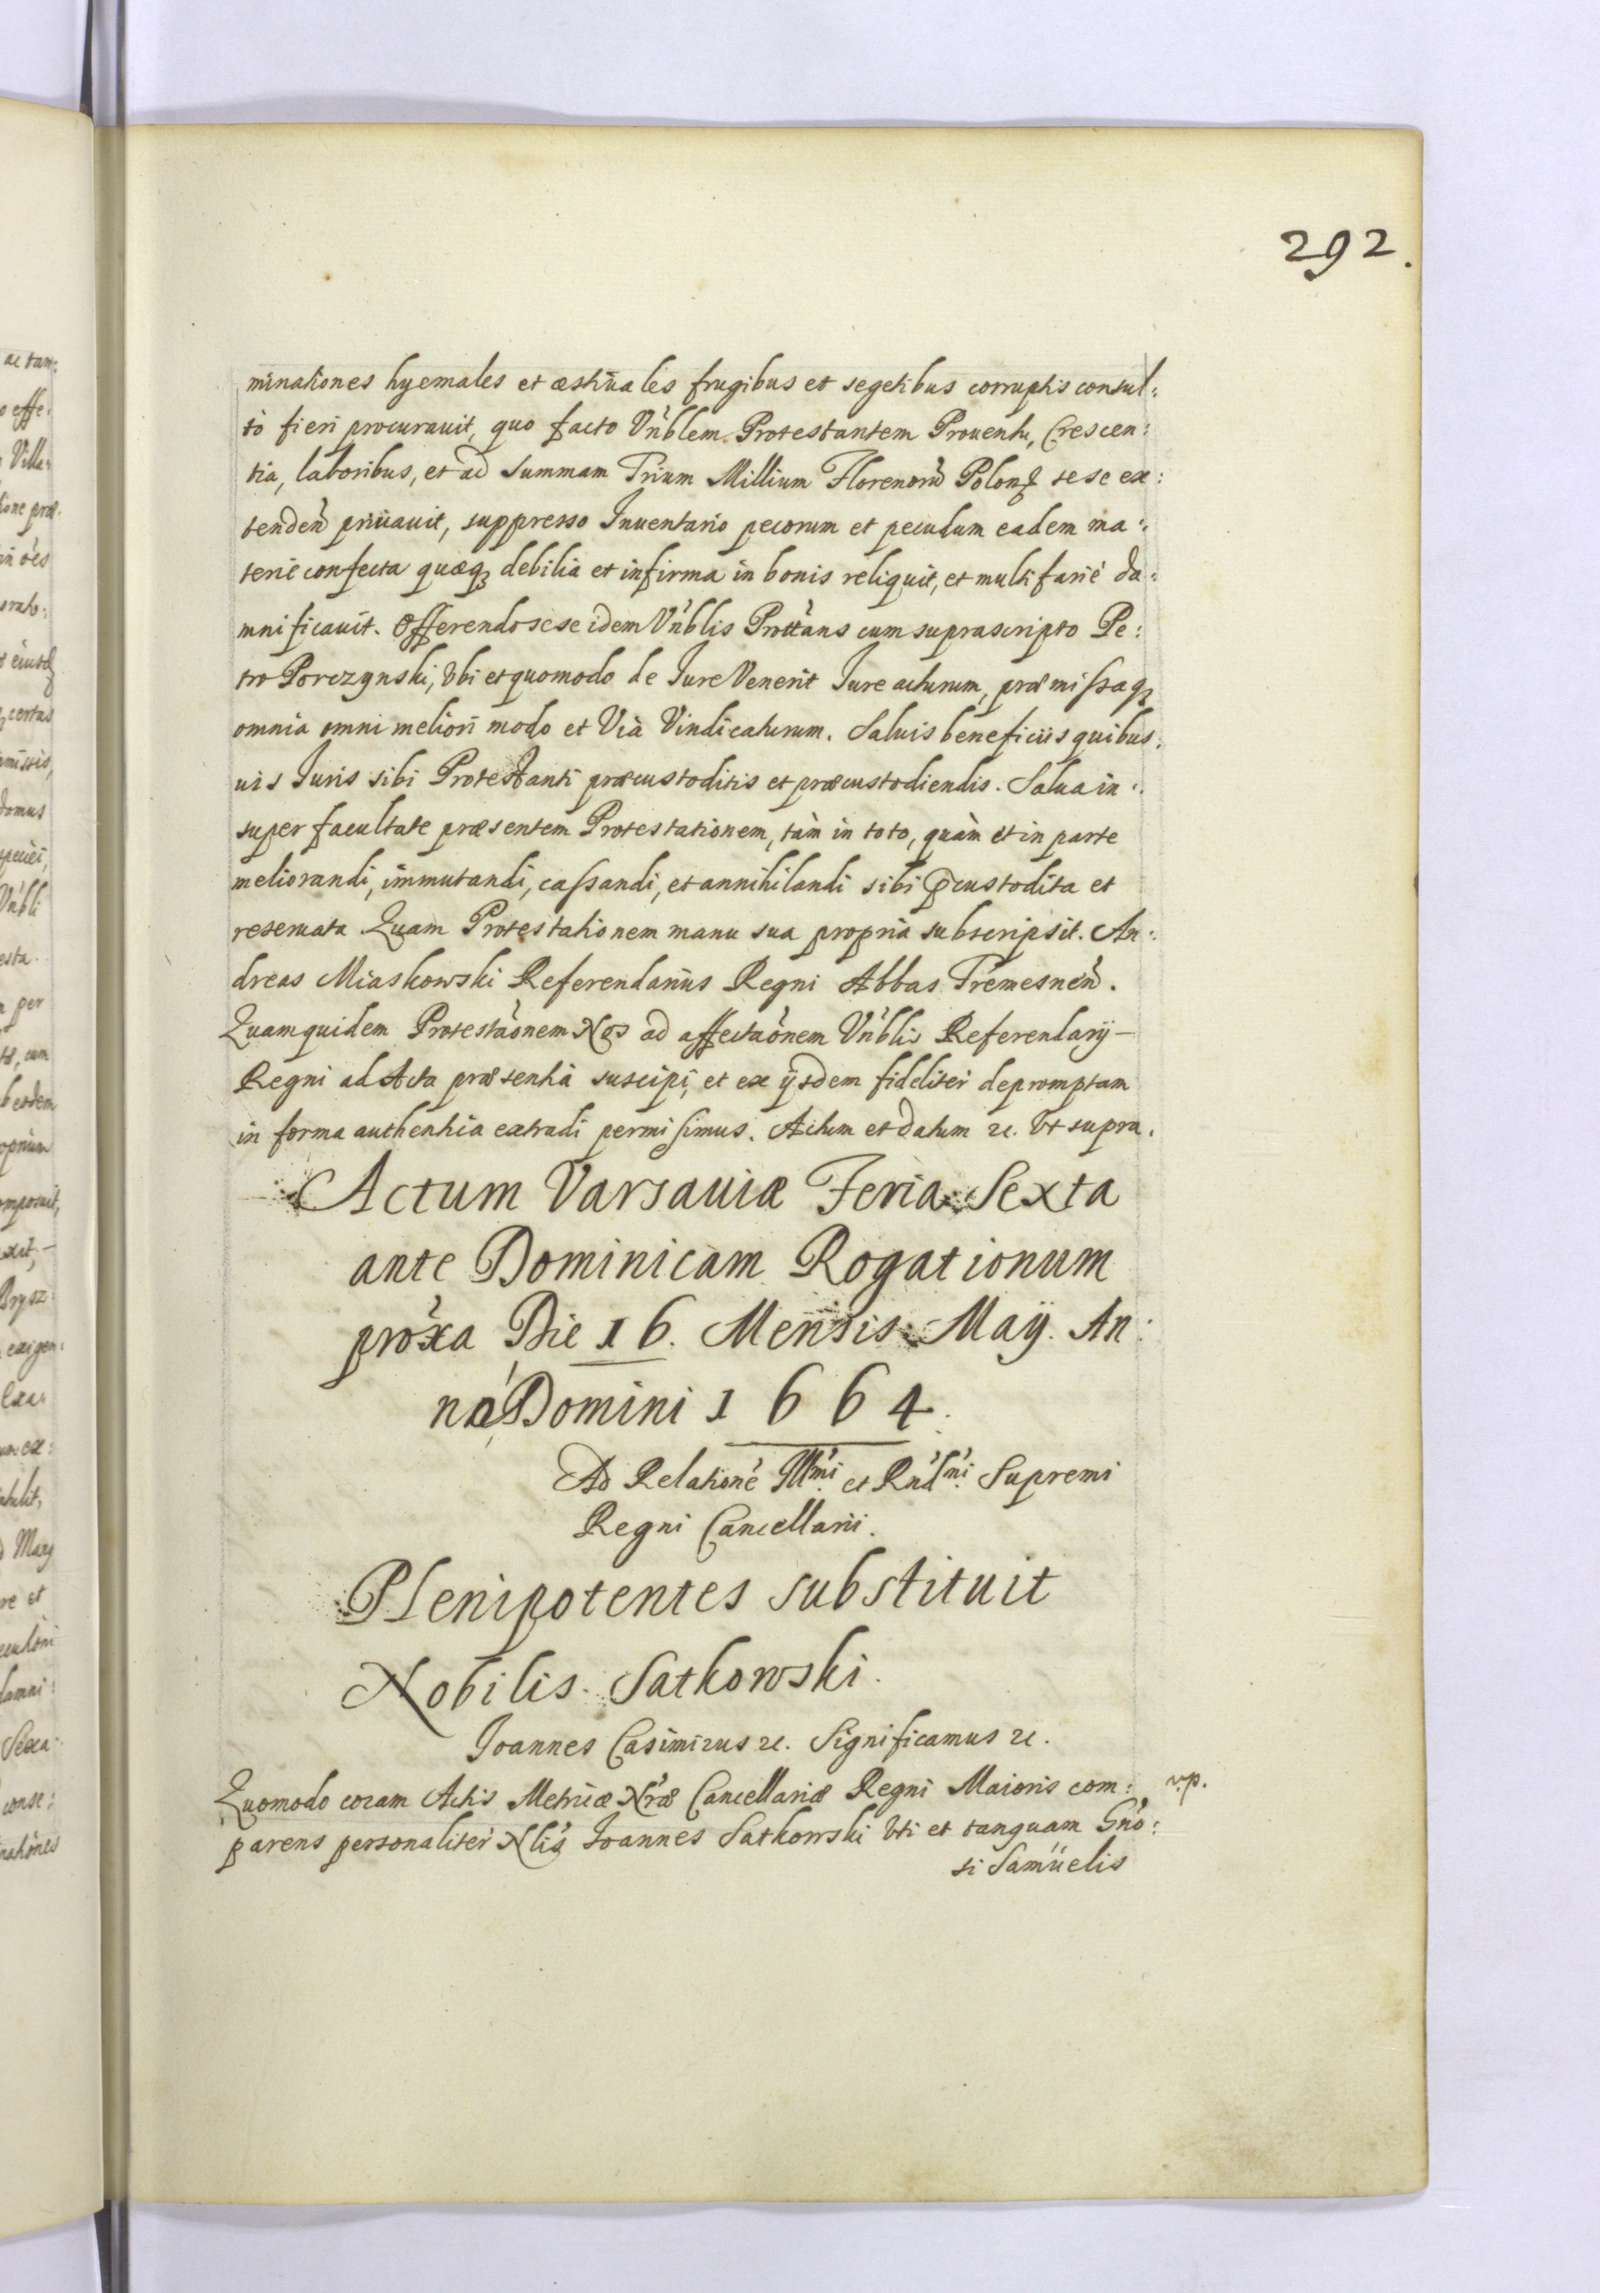 292.
minationes hyemales et æstiuales frugibus et segetibus corruptis consul:
tò fieri procurauit, quo facto Vn̉blem Protestantem Prouentu, Crescen:
tia, laboribus, et ad summam Trium Millium Florenorũ Polonꝫ sese ex:
tendeñ priuauit, suppresso Inuentario pecorum et pecudum eadem ma:
terie confecta quæqꝫ debilia et infirma in bonis reliquit, et multifariè da:
mnificauit. Offerendo sese idem Vn̉blis Prot̃tans cum suprascripto Pe:
tro Porczynski, Vbi et quomodo de Iure Venerit Iure acturum, præmissaqꝫ
omnia omni meliori modo et Vià Vindicaturum. Saluis beneficiis quibus:
uis Iuris sibi Protestanti præcustoditis et præcustodiendis. Salua in:
super facultate præsentem Protestationem, tàm in toto, quàm et in parte
meliorandi, immutandi, cassandi, et annihilandi sibi p̃custodita et
reseruata Quam Protestationem manu sua propria subscripsit. An:
dreas Miaskowski Referendarius Regni Abbas Tremesneñ.
Quamquidem Protestãonem Nos ad affectãonem Vn̉blis Referendarÿ –
Regni ad Acta præsentia suscipi, et ex ÿsdem fideliter depromptam
in forma authentica extradi permisimus. Actum et datum ꝛc. Vt supra.
Actum Varsauiæ Feria Sexta
ante Dominicam Rogationum
prox̃a Die 16. Mensis Maÿ. An:
no Domini 1664.
Ad Relationẽ Illmĩ. et Rñdsmĩ. Supremi
Regni Cancellarii.
Plenipotentes substituit
Nobilis Satkowski.
Joannes Casimirus ꝛc. Significamus ꝛc.
Quomodo coram Actis Metricæ Nr̃æ Cancellariæ Regni Maioris com:
v.p.
parens personaliter Nlĩs Joannes Satkowski Vti et tanquam Gño:
si Samüelis